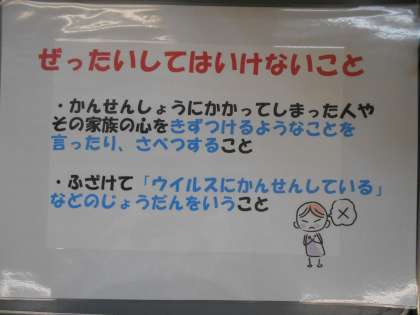 ぜったいしてはいけないこと
・かんせんしょうにかかってしまった人や
その家族の心をきずつけるようなことを
言ったり、さべつすること
・ふざけて「ウイルスにかんせんしている」
などのじょうだんをいうこと